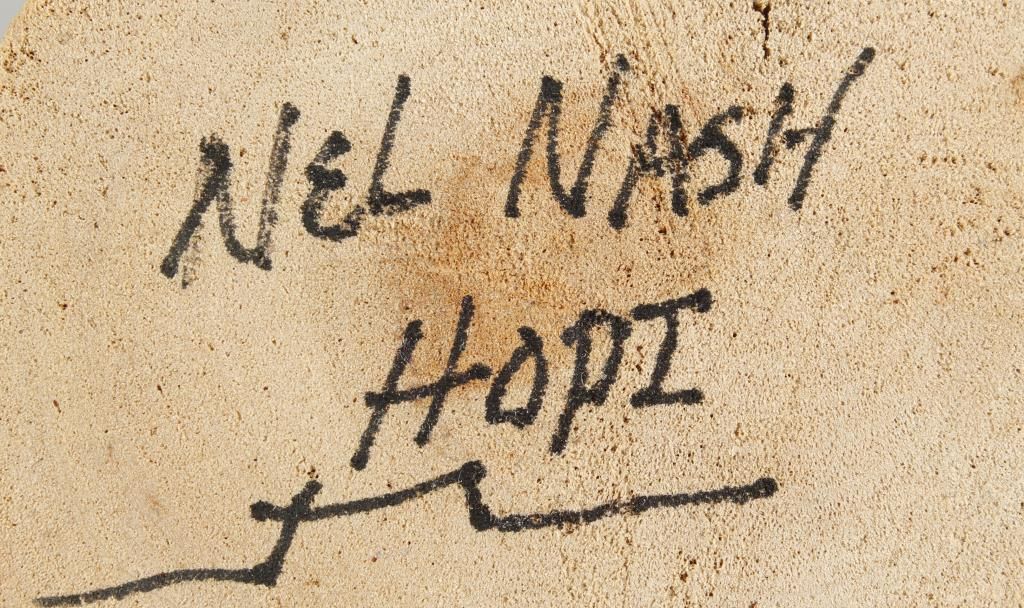 NEL NASH
HOPI